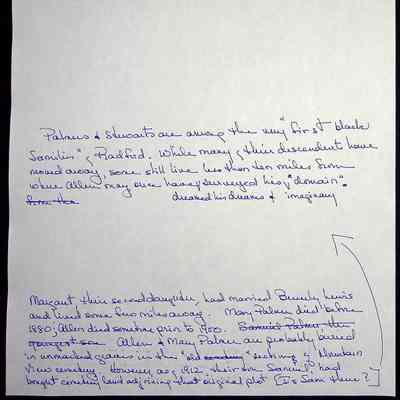 Palmers & Stewarts are among the very "first black
families" of Radford. While many of their descendent have
moved away, some still live less than ten miles from
where Allen may once have surveyed his "domain".
from the dreamed his dreams & imaginary
Margaret their second daughter, had married Beverly Lewis
and lived some few miles away. Mary Palmer died before
1880; Allen died sometime prior to 1900. Samuel Palmer, the
youngest son Allen & Mary Palmer are probably buried
in unmarked graves in the "old cemetery" section of Mountain
View cemetery. However, as of 1912, their son Samuel had
bought cemetery land adjoining that original plot [Is Sam there?]